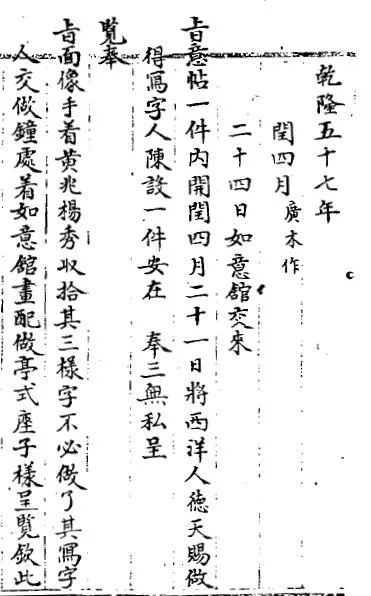 乾隆五十七年
閏四月廣木作
二十四日如意舘交來
旨意帖一件內開閏四月二十一日將西洋人德天賜做
得寫字人陳設一件安在　奉三無私呈
覽奉
旨面像手着黃兆楊秀収拾其三樣字不必做了其寫字
人交做鐘處着如意舘畫配做亭式座子樣呈覽欽此